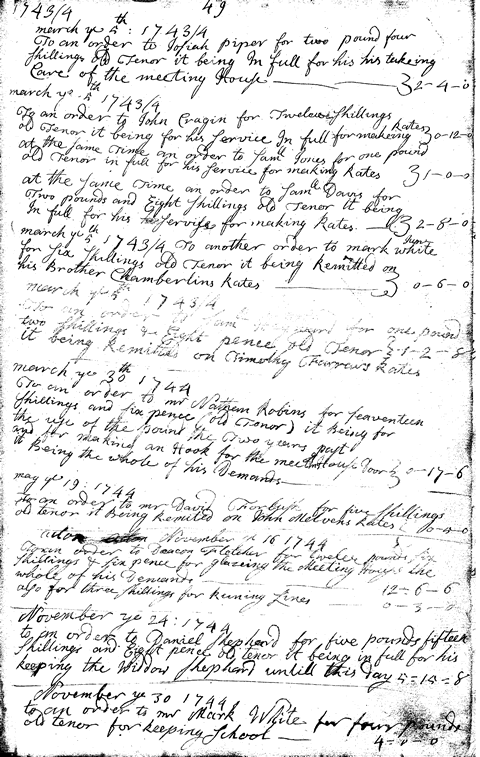 1743/4 49
march ye 5th : 1743/4
To an order to Josiah piper for two pound four
shillings old Tenor it being In full for his his takeing
Care of the meeting House 2-4-0
march ye 5th 1743/4
To an order to John Cragin for Twelve shillings
old Tenor it being for his Service In full for makeing Rates 0-12-0
at the same Time an order to Samll Jones for one pound
old Tenor in full for his Service for making Rates 3 1-0-0
at the same Time an order to Samll Davis for
Two pounds and Eight shillings old Tenor it being
In full for his Service for making Rates. 2-8-0
march ye 5th 1743/4 To another order to mark white Junr
for six shillings old Tenor it being Remitted on
his Brother Chamberlins Rates 0-6-0
march ye 5th 1743/4
To an order to Sam for one pound
two shillings & Eight pence old Tenor 1-2-8
it being Remitted on Timothy Farrars Rates
march ye 30th 1744
To an order to mr Nathan Robins for seaventeen
shillings and six pence old Tenor it Being for
the use of the pound the Two years past
and for making an Hook for the meeting House Door 0-17-6
it Being the whole of his Demands
may ye 19 : 1744
to an order to mr David for five shillings
old tenor it Being Remited on John Melvens Rates
November ye 16 1744
To an order to Deacon Fletcher for twelve pounds six
shillings & six pence for glazeing the Meeting House the
whole of his Demands 12-6-6
also for three shillings for Runing Lines 0-3-0
November ye 24 : 1744
to an order to Daniel Shepherd for five pounds fifteen
shillings and Eight pence old tenor it being in full for his
keeping the Widdow Shepherd untill this day 5-15-8
November ye 30 1744
to an order to mr Mark White for four pounds
old tenor for keeping School 4-0-0